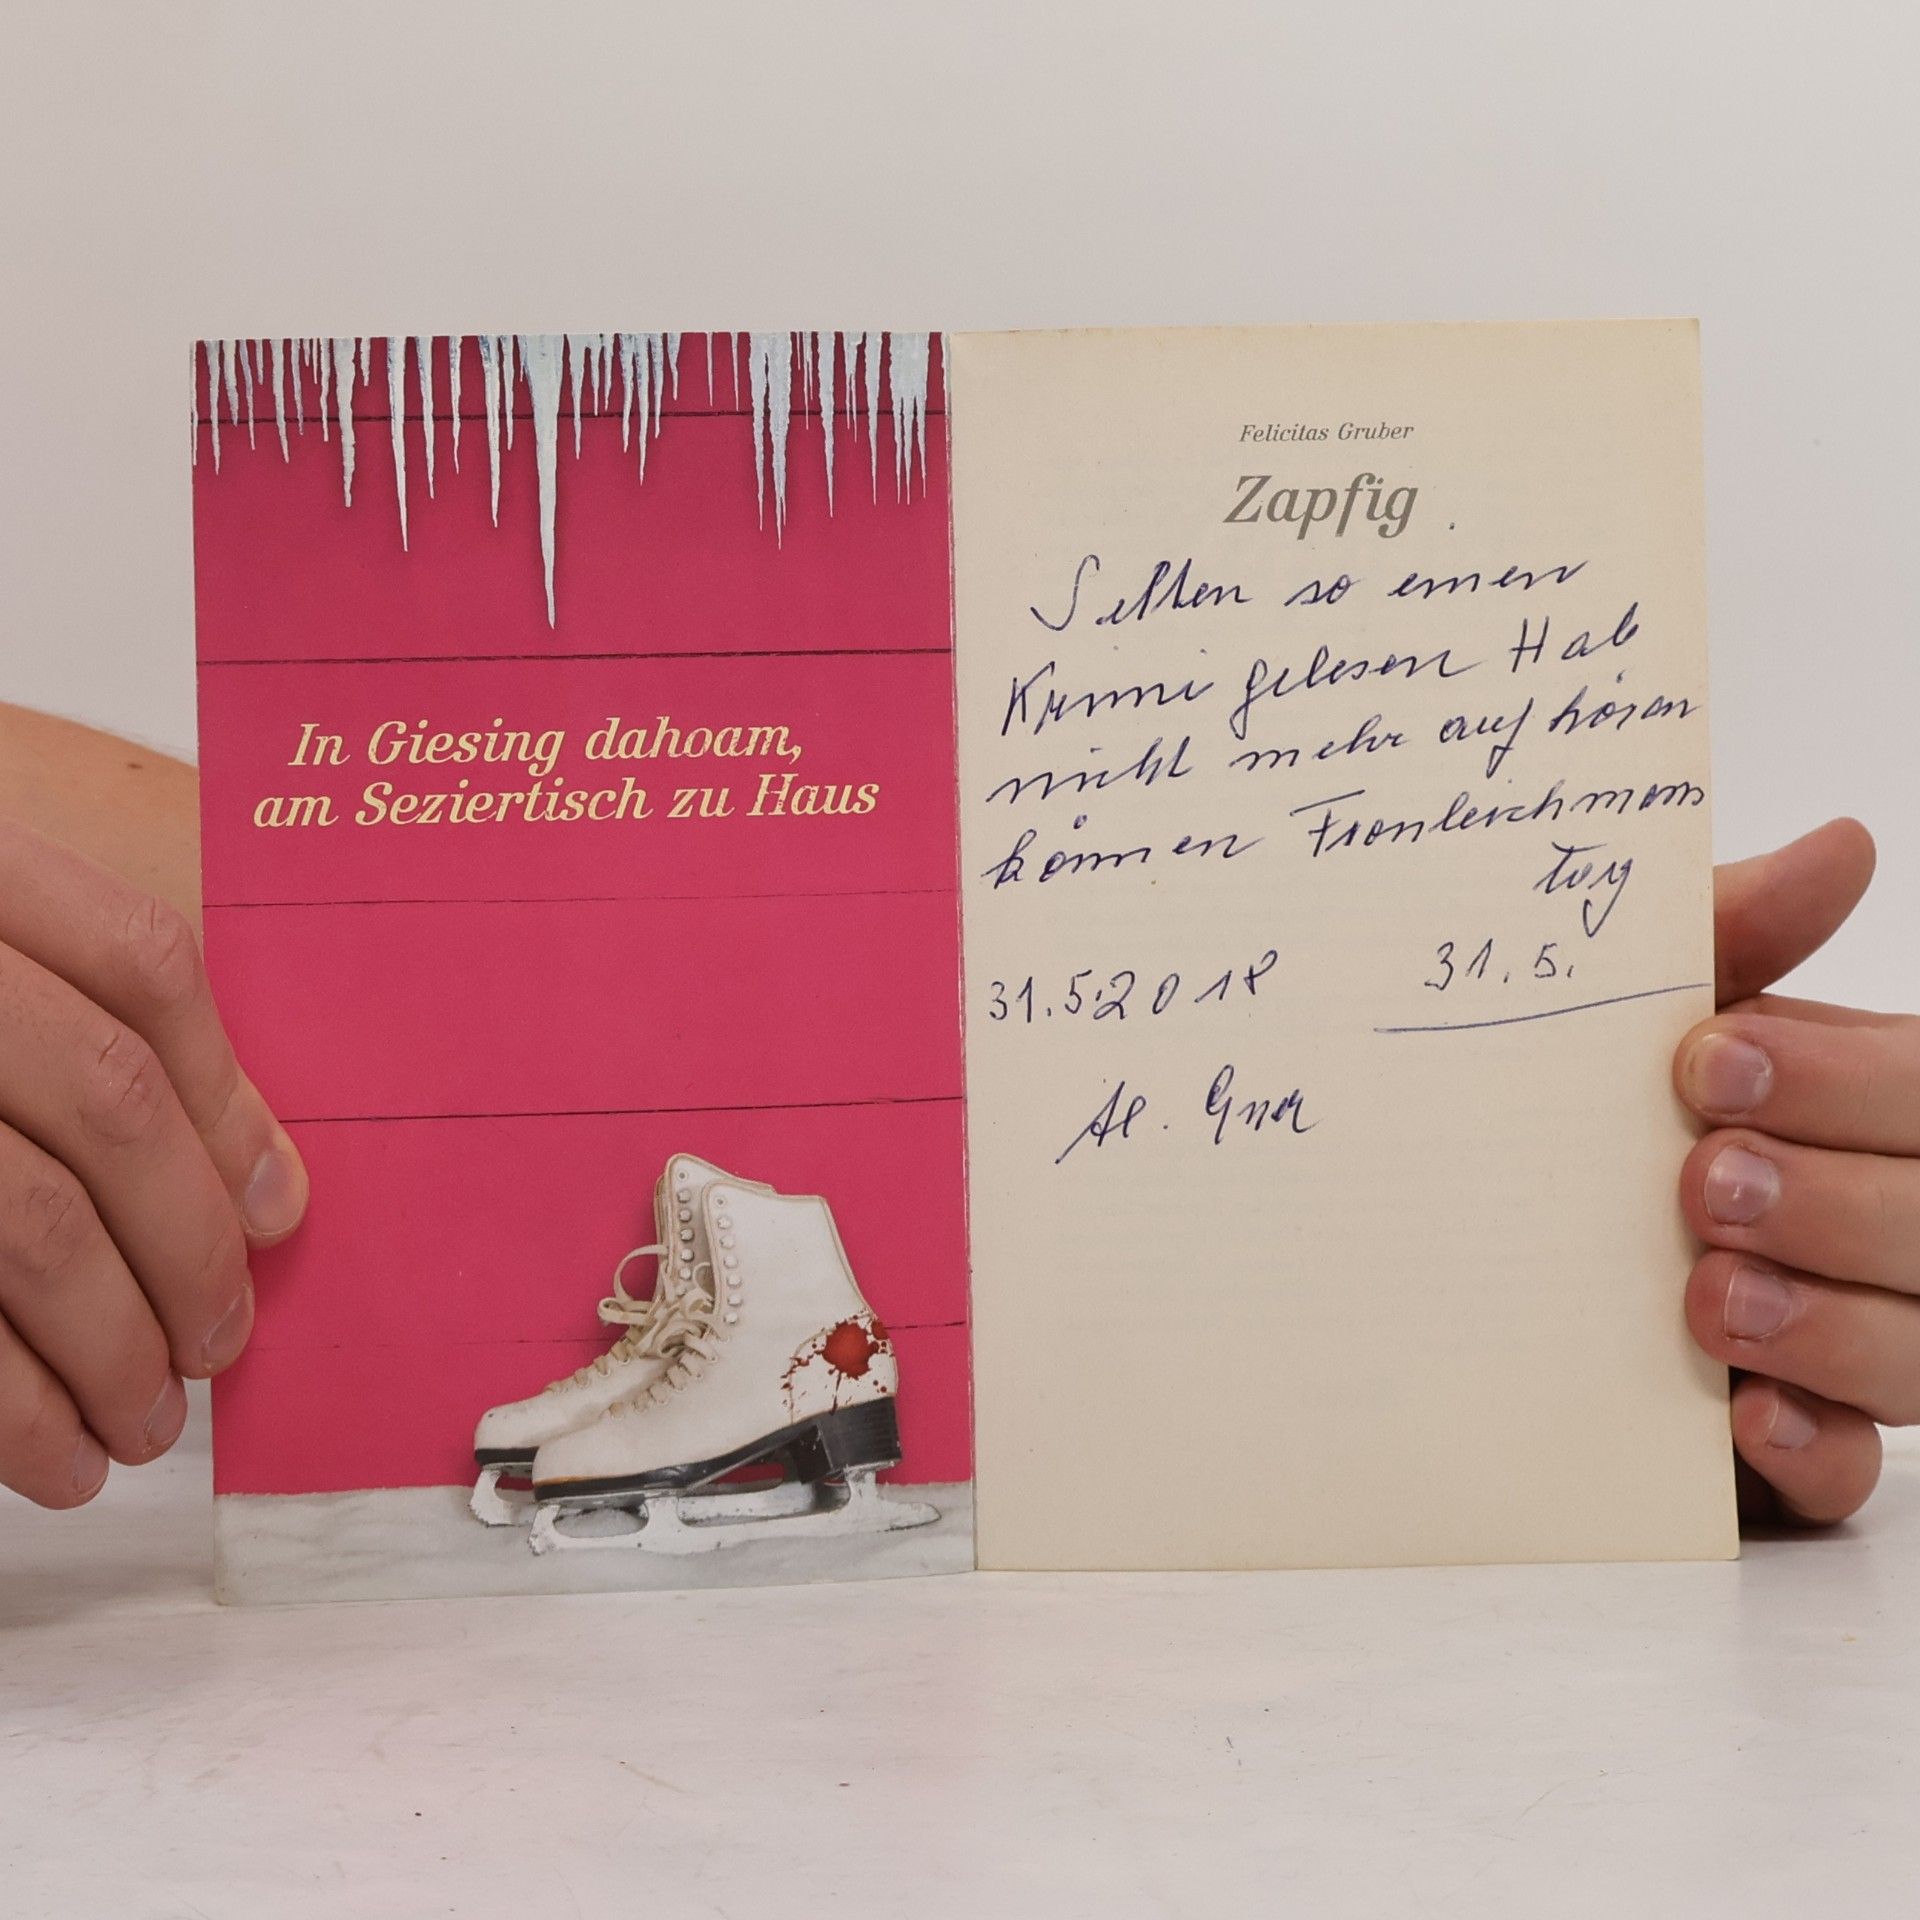 In Giesing dahoam,
am Seziertisch zu Haus
Felicitas Gruber
Zapfig
Selten so einen
Krimi gelesen Hab
nicht mehr auf hören
können Fronleichnams
tag
31.5.2018
31.5.